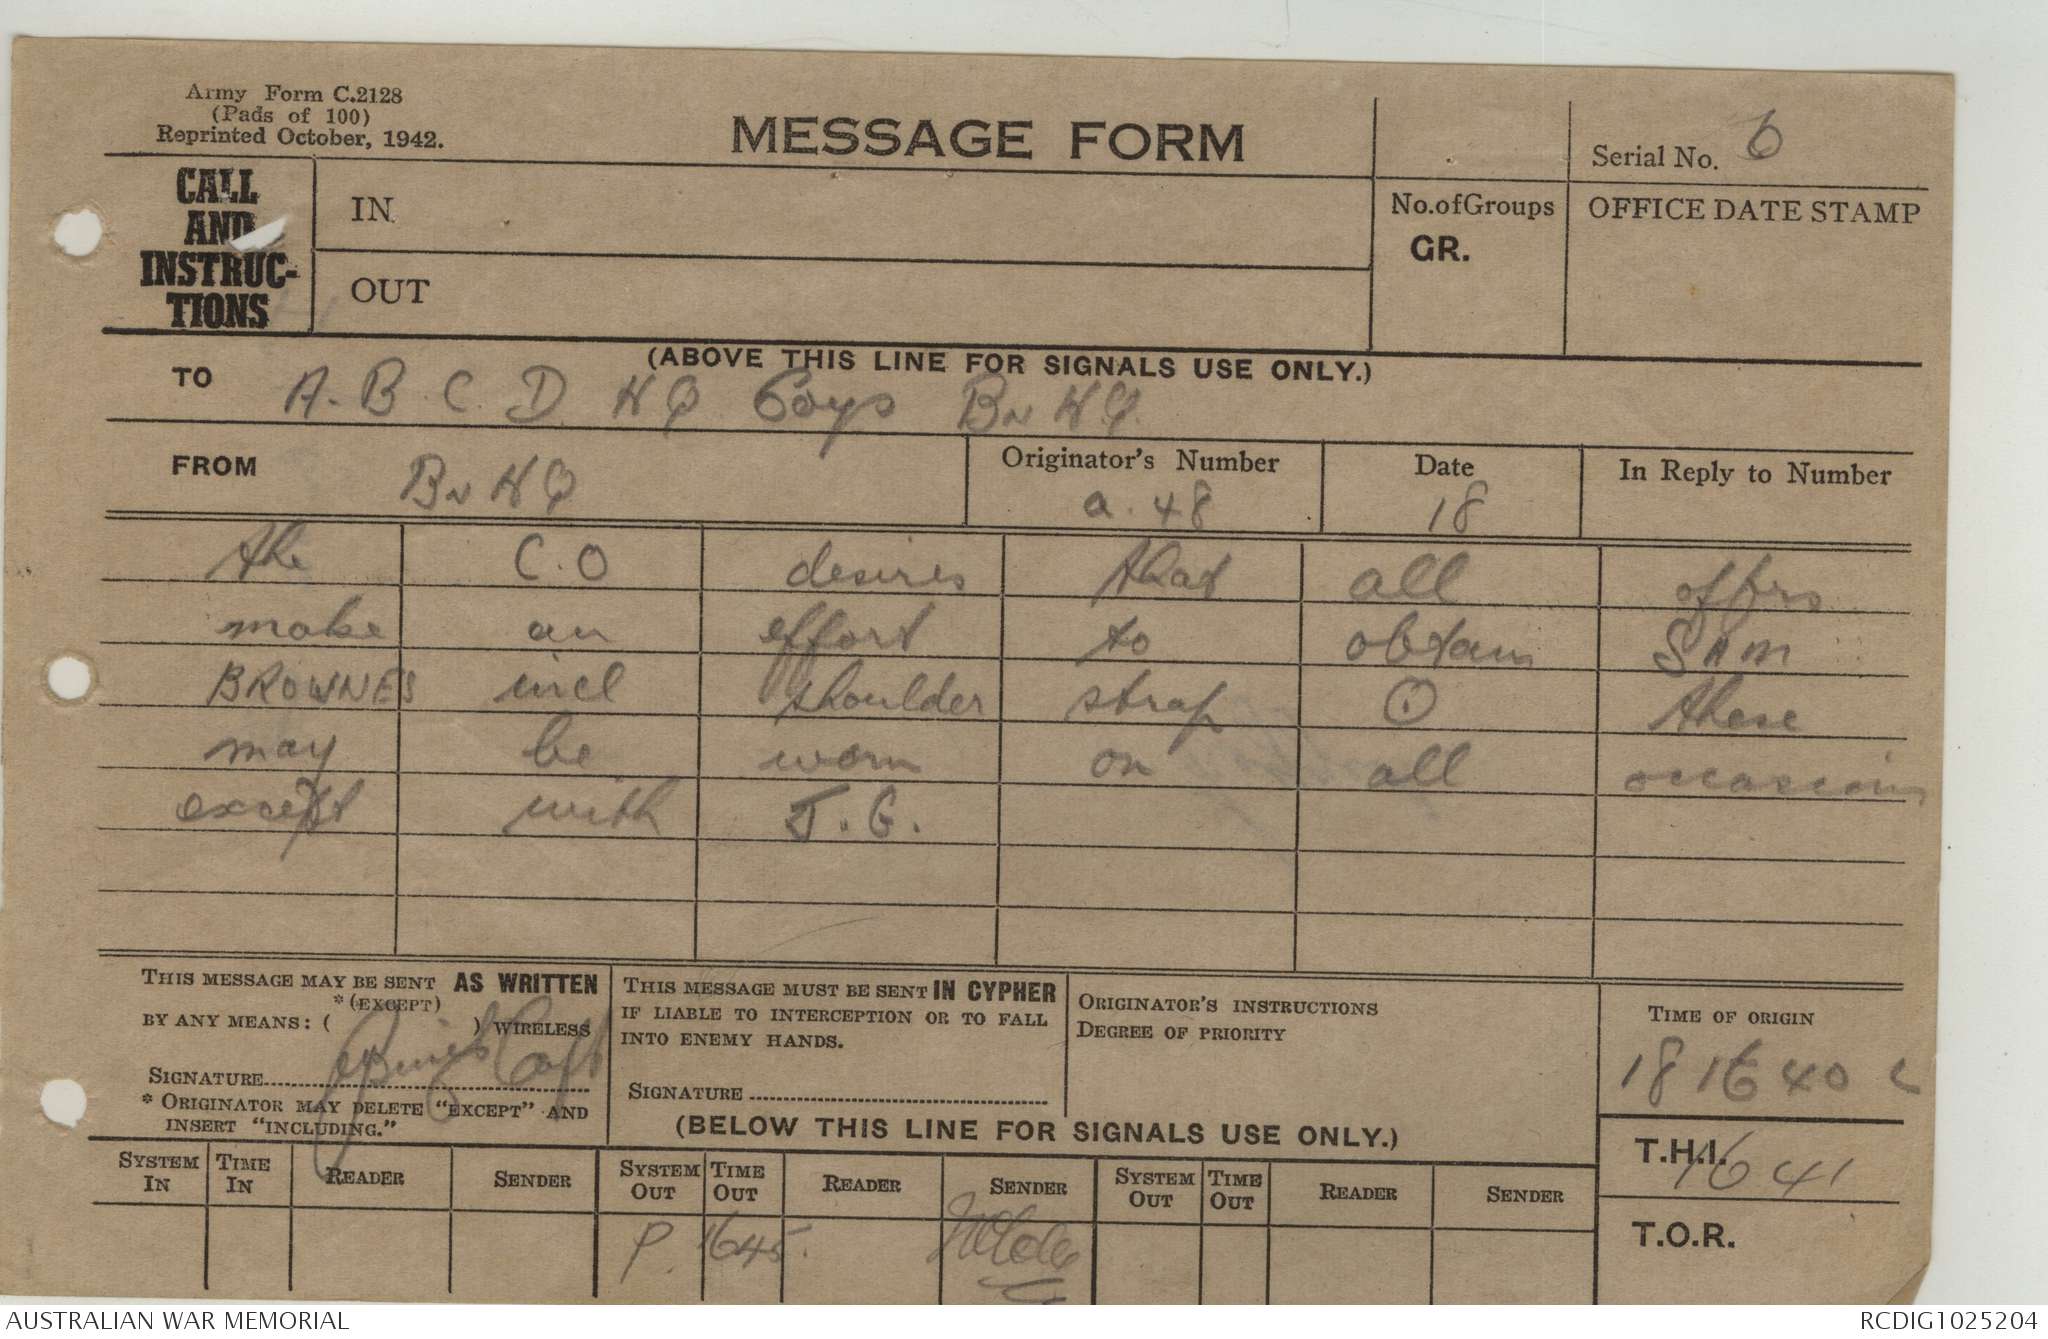 Army Form C.2128
(Pads of 100)
Reprinted October, 1942.
MESSAGE FORM
Serial No. 6
CALL
AND
INSTRUC-
TIONS
IN
OUT
No. of Groups
GR.
OFFICE DATE STAMP
(ABOVE THIS LINE FOR SIGNALS USE ONLY.)
TO A. B. C. D. HQ Coys Bn HQ.
FROM Bn HQ
Originator's Number a. 48
Date 18
In Reply to Number
the C.O desires that all offrs
make an effort to obtain SAM
BROWNES incl shoulder strap ⊙ these
may be worn on all occasions
except with J.G.
THIS MESSAGE MAY BE SENT AS WRITTEN
*(EXCEPT)
BY ANY MEANS: ( ) WIRELESS
SIGNATURE Capt
* ORIGINATOR MAY DELETE "EXCEPT" AND
INSERT "INCLUDING."
THIS MESSAGE MUST BE SENT IN CYPHER
IF LIABLE TO INTERCEPTION OR TO FALL
INTO ENEMY HANDS.
SIGNATURE
ORIGINATOR'S INSTRUCTIONS
DEGREE OF PRIORITY
TIME OF ORIGIN
181640
(BELOW THIS LINE FOR SIGNALS USE ONLY.)
T.H.I. 1641
T.O.R.
SYSTEM IN TIME IN READER SENDER SYSTEM OUT TIME OUT READER SENDER SYSTEM OUT TIME OUT READER SENDER
P. 1645.
AUSTRALIAN WAR MEMORIAL
RCDIG1025204